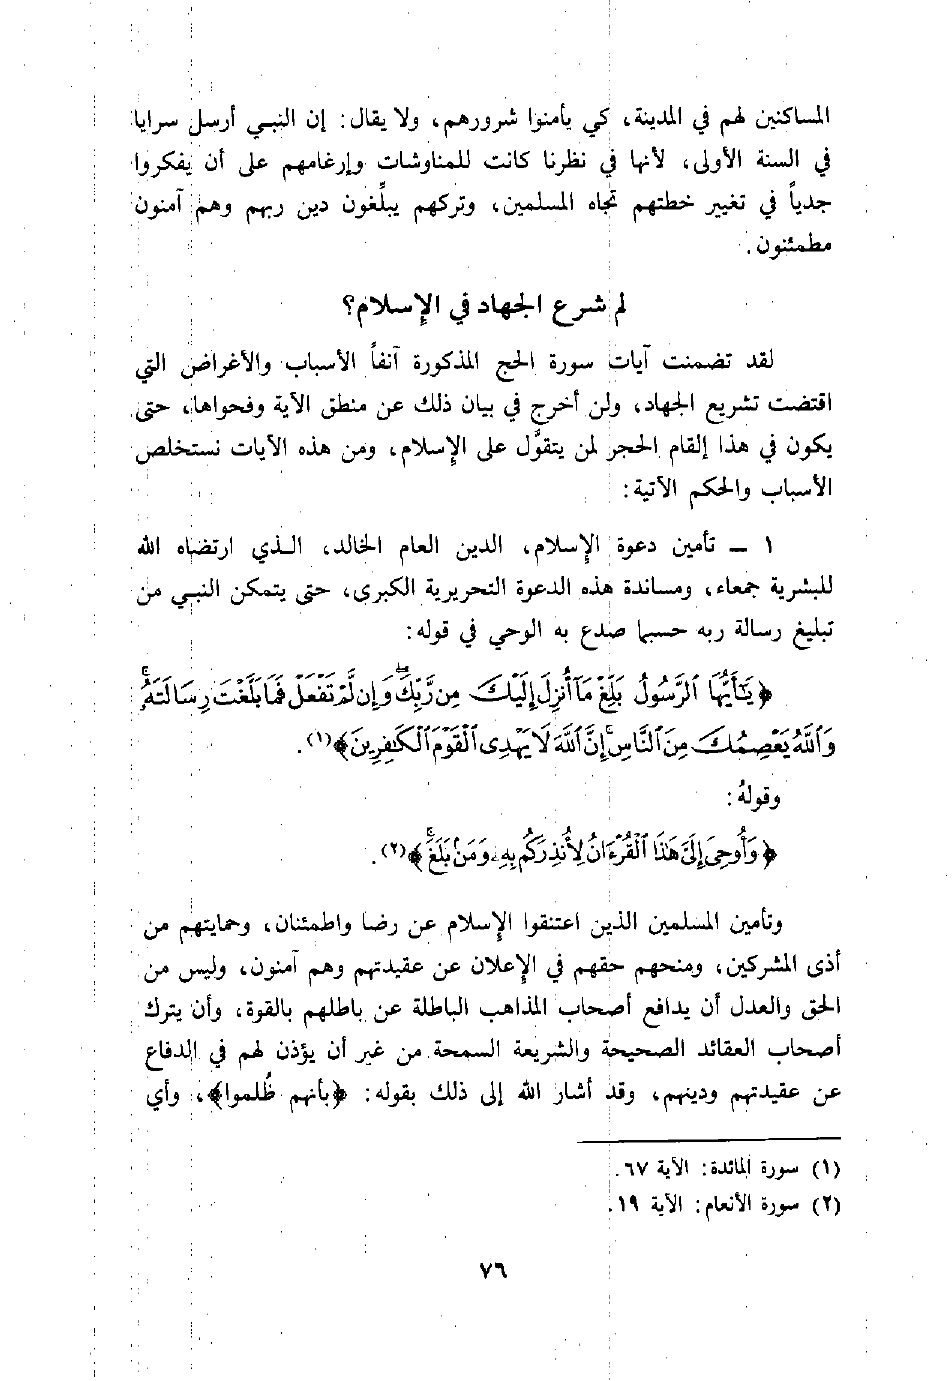 المساكنين لهم في المدينة، كي يأمنوا شرورهم، ولا يقال: إن النبي أرسل سرايا
في السنة الأولى، لأنها في نظرنا كانت للمناوشات وإرغامهم على أن يفكروا
جدياً في تغيير خطتهم تجاه المسلمين، وتركهم يبلِّغون دين ربهم وهم آمنون
مطمئنون.
لم شرع الجهاد في الإسلام؟
لقد تضمنت آيات سورة الحج المذكورة آنفاً الأسباب والأغراض التي
اقتضت تشريع الجهاد، ولن أخرج في بيان ذلك عن منطق الآية وفحواها، حتى
يكون في هذا إلقام الحجر لمن يتقوَّل على الإسلام، ومن هذه الآيات نستخلص
الأسباب والحكم الآتية:
١ ــ تأمين دعوة الإسلام، الدين العام الخالد، الذي ارتضاه الله
للبشرية جمعاء، ومساندة هذه الدعوة التحريرية الكبرى، حتى يتمكن النبي من
تبليغ رسالة ربه حسبما صدع به الوحي في قوله:
﴿يَٰٓأَيُّهَا ٱلرَّسُولُ بَلِّغۡ مَآ أُنزِلَ إِلَيۡكَ مِن رَّبِّكَۖ وَإِن لَّمۡ تَفۡعَلۡ فَمَا بَلَّغۡتَ رِسَالَتَهُۥۚ
وَٱللَّهُ يَعۡصِمُكَ مِنَ ٱلنَّاسِۗ إِنَّ ٱللَّهَ لَا يَهۡدِى ٱلۡقَوۡمَ ٱلۡكَٰفِرِينَ﴾(١).
وقولهُ:
﴿وَأُوحِىَ إِلَىَّ هَٰذَا ٱلۡقُرۡءَانُ لِأُنذِرَكُم بِهِۦ وَمَنۢ بَلَغَۚ﴾(٢).
وتأمين المسلمين الذين اعتنقوا الإسلام عن رضا واطمئنان، وحمايتهم من
أذى المشركين، ومنحهم حقهم في الإعلان عن عقيدتهم وهم آمنون، وليس من
الحق والعدل أن يدافع أصحاب المذاهب الباطلة عن باطلهم بالقوة، وأن يترك
أصحاب العقائد الصحيحة والشريعة السمحة من غير أن يؤذن لهم في الدفاع
عن عقيدتهم ودينهم، وقد أشار الله إلى ذلك بقوله: ﴿بأنهم ظُلموا﴾، وأي
(١) سورة المائدة: الآية ٦٧.
(٢) سورة الأنعام: الآية ١٩.
٧٦